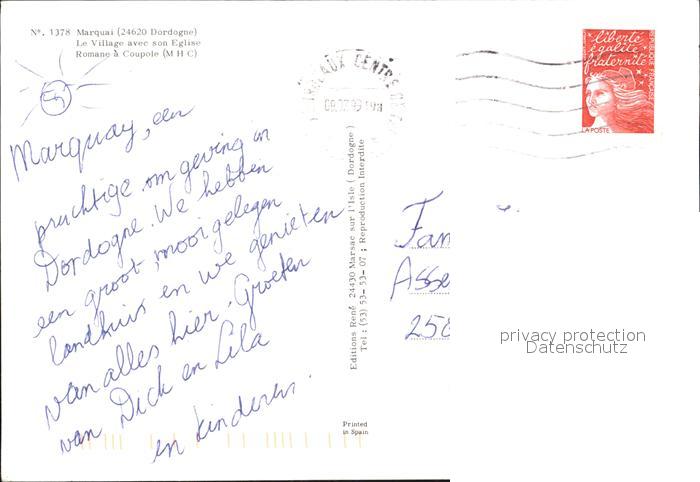 Nº. 1378 Marquai (24620 Dordogne)
Le Village avec son Eglise
Romane à Coupole (M H C)
Marquay, een
prachtige omgeving in
Dordogne. We hebben
een groot, mooi gelegen
landhuis en we genieten
van alles hier. Groeten
van Dick en Lila
en kinderen.
Editions René 24430 Marsac sur l'Isle ( Dordogne)
Tel : (53) 53-53-07 ; Reproduction Interdite
Printed
in Spain
BORDEAUX CENTRE
liberté
égalité
fraternité
REPUBLIQUE FRANÇAISE
LA POSTE
Fam
Asse
250
privacy protection
Datenschutz